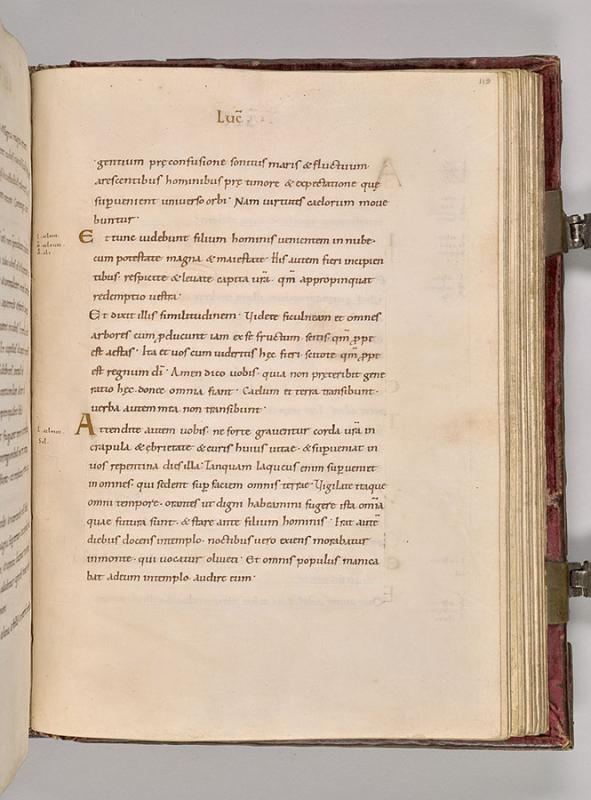 119
Luc̄
gentium pręconfusione sonitus maris & fluctuum·
arescentibus hominibus prę timore & expectatione quę
supuenient universo orbi· Nam uirtutes caelorum moue
buntur·
Et tunc uidebunt filium hominis uenientem in nube·
cum potestate magna & maiestate· His autem fieri incipien
tibus· respicite & leuate capita ur̄a· qm̄ appropinquat
redemptio uestra·
Et dixit illis similitudinem· Uidete ficulneam et omnes
arbores cum pducunt iam ex se fructum· scitis qm̄ ppe
est aestas· Ita et uos cum uideritis hęc fieri· scitote qm̄ ppe
est regnum dī· Amen dico uobis· quia non pręteribit gene
ratio hęc· donec omnia fiant· Caelum et terra transibunt·
uerba autem mea non transibunt·
Attendite autem uobis· ne forte grauentur corda ur̄a in
crapula & ebrietate & curis huius uitae· & supueniat in
uos repentina dies illa· Tanquam laqueus enim supueniet
in omnes· qui sedent sup faciem omnis terrae· Uigilate itaque
omni tempore· orantes ut digni habeamini fugere ista omīa
quae futura sunt· & stare ante filium hominis· Erat autē
diebus docens intemplo· noctibus uero exiens morabatur
inmonte· qui uocatur oliueti· Et omnis populus manica
bat adeum intemplo· audire eum·